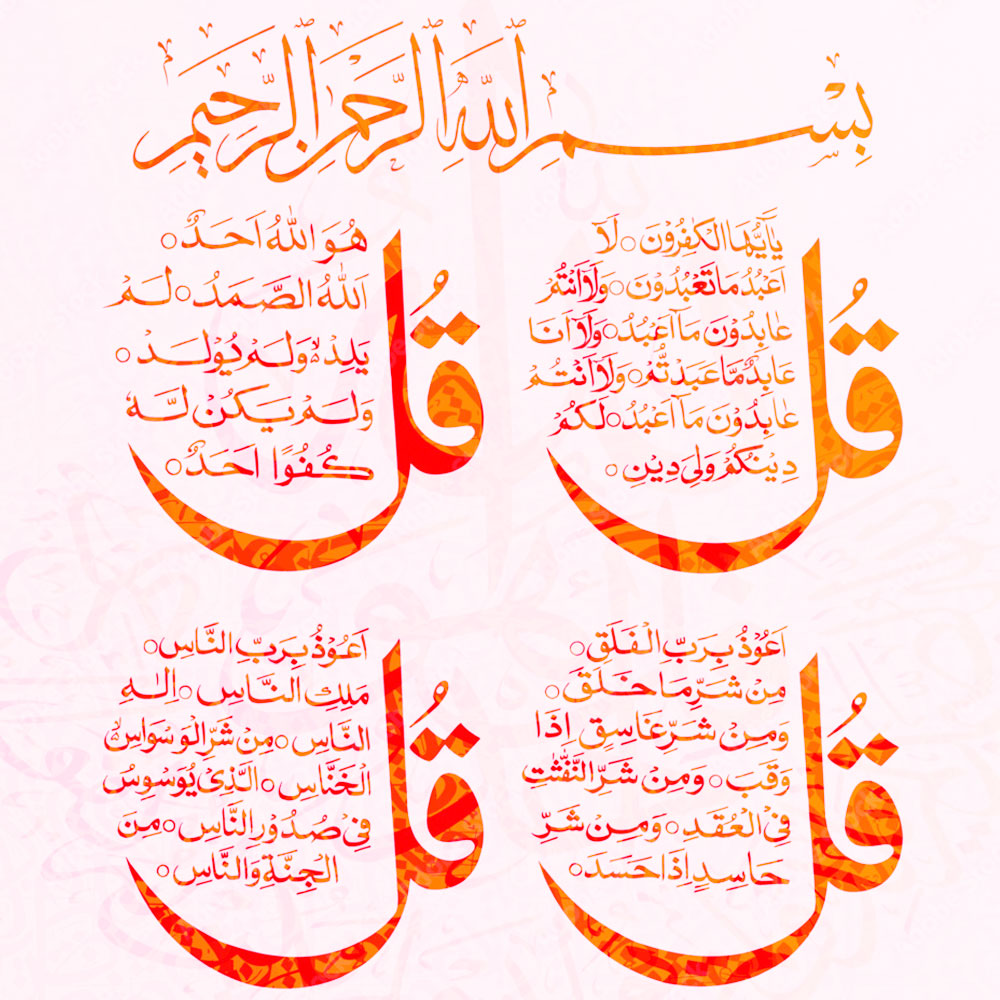 بِسْمِ اللهِ الرَّحْمٰنِ الرَّحِيْمِ
قُلْ
يٰٓاَيُّهَا الْكٰفِرُوْنَ ○ لَآ
اَعْبُدُ مَا تَعْبُدُوْنَ ○ وَلَآ اَنْتُمْ
عٰبِدُوْنَ مَآ اَعْبُدُ ○ وَلَآ اَنَا
عَابِدٌ مَّا عَبَدْتُّمْ ○ وَلَآ اَنْتُمْ
عٰبِدُوْنَ مَآ اَعْبُدُ ○ لَكُمْ
دِيْنُكُمْ وَلِيَ دِيْنِ ○
قُلْ
هُوَ اللهُ اَحَدٌ ○
اَللهُ الصَّمَدُ ○ لَمْ
يَلِدْ ۙ وَلَمْ يُوْلَدْ ○
وَلَمْ يَكُنْ لَّهٗ
كُفُوًا اَحَدٌ ○
قُلْ
اَعُوْذُ بِرَبِّ الْفَلَقِ ○
مِنْ شَرِّ مَا خَلَقَ ○
وَمِنْ شَرِّ غَاسِقٍ اِذَا
وَقَبَ ○ وَمِنْ شَرِّ النَّفّٰثٰتِ
فِى الْعُقَدِ ○ وَمِنْ شَرِّ
حَاسِدٍ اِذَا حَسَدَ ○
قُلْ
اَعُوْذُ بِرَبِّ النَّاسِ ○
مَلِكِ النَّاسِ ○ اِلٰهِ
النَّاسِ ○ مِنْ شَرِّ الْوَسْوَاسِ ۙ
الْخَنَّاسِ ○ الَّذِيْ يُوَسْوِسُ
فِيْ صُدُوْرِ النَّاسِ ○ مِنَ
الْجِنَّةِ وَالنَّاسِ ○